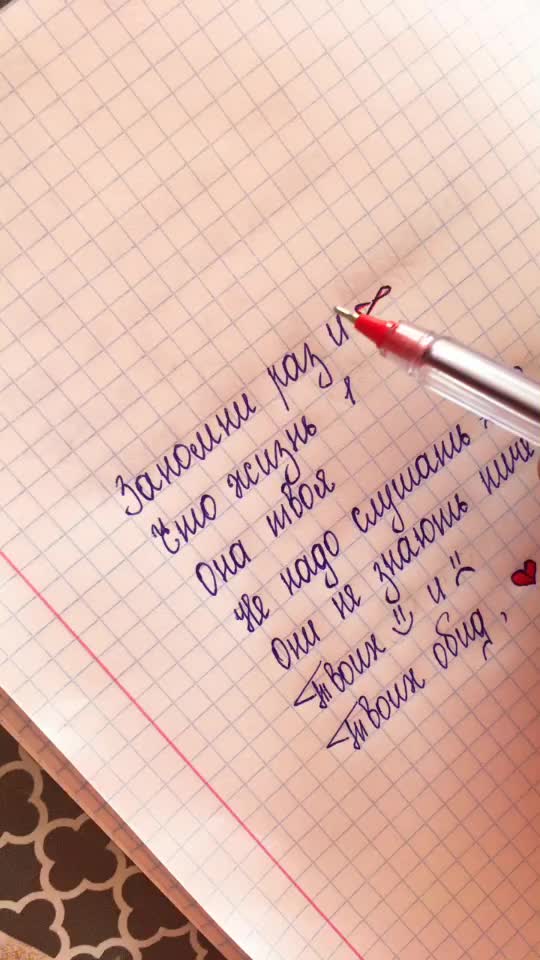 Запомни раз и
Что жизнь 1
Она твоя
Не надо слушать
Они не знають ниче
Твоих и
Твоих обид,